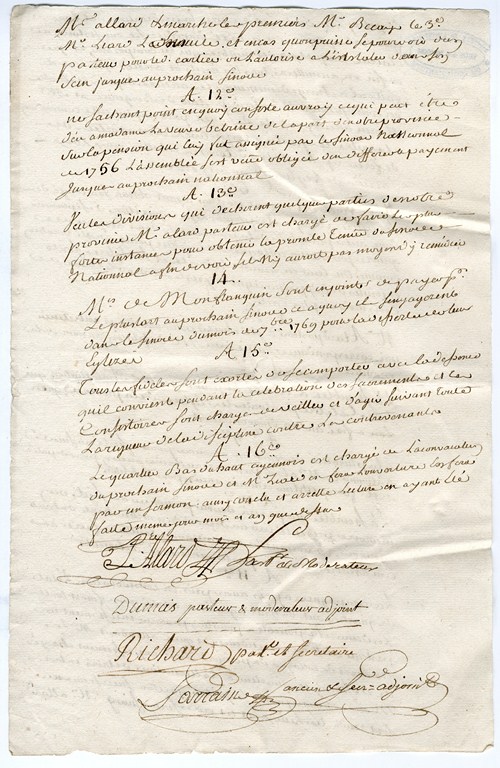 Mr. allard Lamarche le premiers Mr. Becay le 3e.
Mr. Liard La et encas quon puisse se pourvoir d'un
pasteur pour led. cartier on L'autorise a L'instaler dans son
sein jusque au prochain sinode
A. 12o
ne sachant point en quoy consiste au vray ce qui peut être
deu a madame La veuve betrine de la part de notre province
sur la pension qui luy fut assignée par le sinode Nationnal
de 1756 L'assemblée s'est veüe obligée den differer le payement
jusques au prochain nationnal
A. 13o
Vu les divisions qui dechirent quelques parties de notre
province Mr. alard pasteur est chargé de faire les plus
fortes instances pour obtenir la promte Tenue du sinode
Nationnal afin de voir s'il N'y auroit pas moyen d'y remedier
14
Mrs. de Monflanquin sont enjoints de payer
Le plustart au prochain sinode ce a quoy il s'engagerent
dans le sinode du mois de 7bre 1769 pour la desserte de leur
Eglizes
A 15o
Tous les fideles sont exortés de se comporter avec la descence
qu'il convient pendant la celebration des sacrements et les
Consistoires sont chargés de veiller et d'agir suivant toute
La rigueur de la discipline contre Les contrevenants
A. 16o
Le quartier Bas du haut agenois est chargé de La convocation
du prochain sinode et Mr. Liard en fera L'ouverture
par un sermon. ainsy conclu et arretté lecture en ayant été
faite meme jour mois et an que dessus
P. Allard past. et Moderateur
Dumas pasteur & moderateur adjoint
Richard past. et secretaire
Larraine ancien & secre adjoint